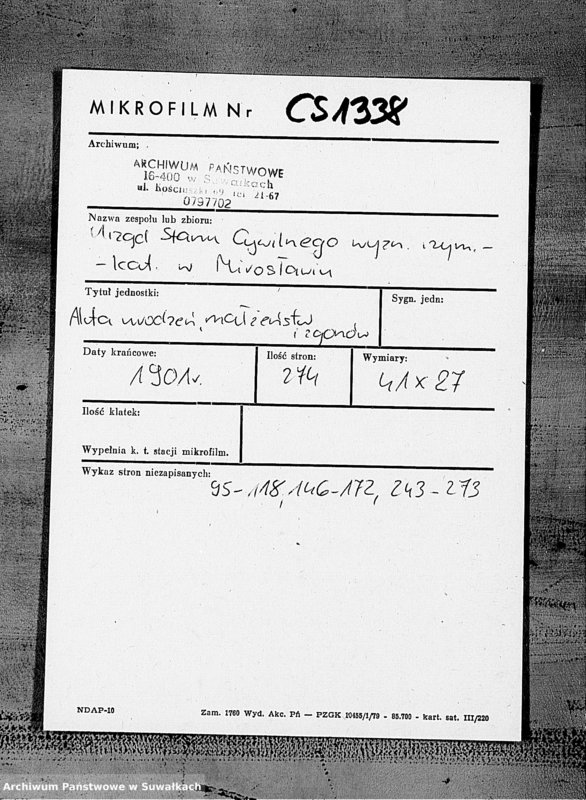 MIKROFILM Nr CS1338
Archiwum;
ARCHIWUM PAŃSTWOWE
16-400 w Suwałkach
ul. Kościuszki 69 tel 21-67
0797702
Nazwa zespołu lub zbioru:
Urząd Stanu Cywilnego wyzn. rzym.-
-kat. w Mirosławiu
Tytuł jednostki:
Sygn. jedn:
Akta urodzeń, małżeństw
i zgonów
Daty krańcowe:
Ilość stron:
Wymiary:
1901r.
274
41 x 27
Ilość klatek:
Wypełnia k. t. stacji mikrofilm.
Wykaz stron niezapisanych:
95-118, 146-172, 243-273
NDAP-10
Zam. 1760 Wyd. Akc. Pń — PZGK 10455/1/79 - 85.700 - kart. sat. III/220
Archiwum Państwowe w Suwałkach